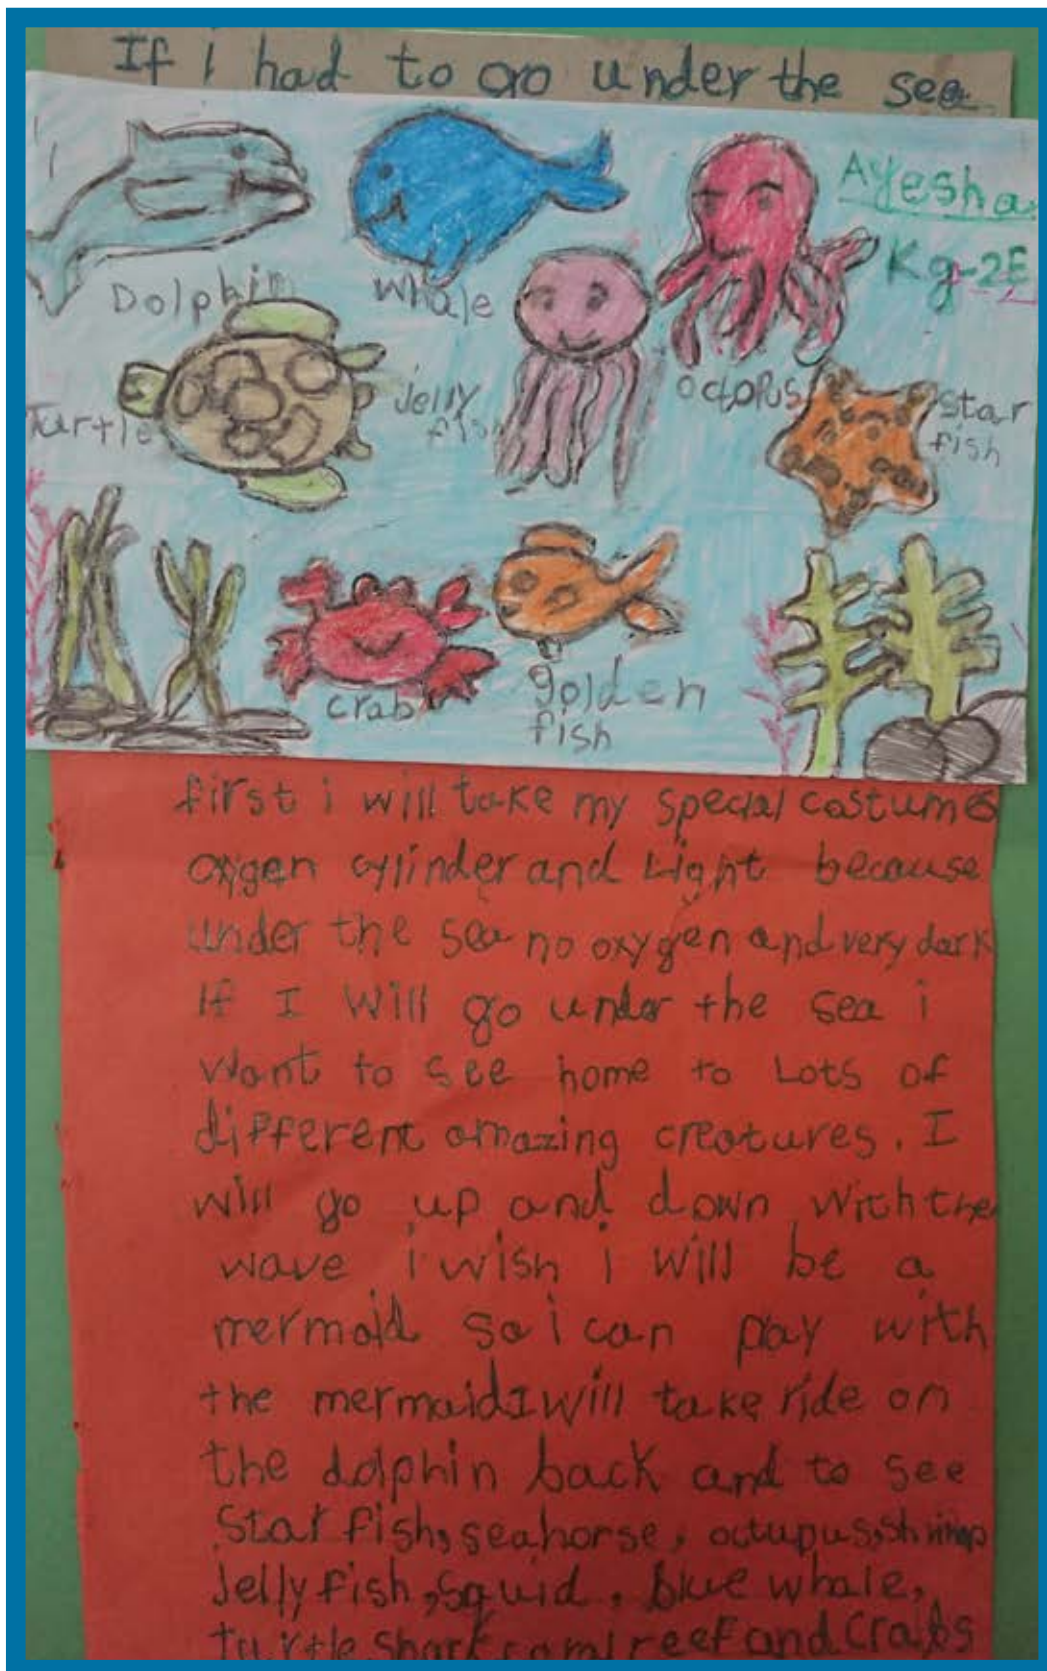 If i had to go under the sea
Ayesha
Kg-2E
Dolphin
whale
octopus
Turtle
jelly
fish
star
fish
crab
golden
fish
first i will take my special costume
oxygen cylinder and Light because
under the sea no oxygen and very dark
If I will go under the sea i
want to see home to Lots of
different amazing creatures. I
will go up and down with the
wave i wish i will be a
mermaid so i can play with
the mermaid I will take ride on
the dolphin back and to see
Star fish, seahorse, octupus, shrimp
Jelly fish, squid, blue whale,
turtle shark coral reef and crabs